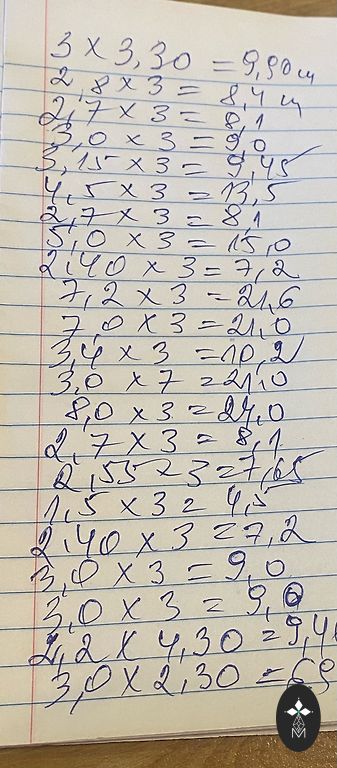 3 x 3,30 = 9,90 m
2,8 x 3 = 8,4 m
2,7 x 3 = 8,1
3,0 x 3 = 9,0
3,15 x 3 = 9,45
4,5 x 3 = 13,5
2,7 x 3 = 8,1
5,0 x 3 = 15,0
2.40 x 3 = 7,2
7,2 x 3 = 21,6
7,0 x 3 = 21,0
3,4 x 3 = 10,2
3,0 x 7 = 21,0
8,0 x 3 = 24,0
2,7 x 3 = 8,1
2,55 x 3 = 7,65
1,5 x 3 = 4,5
2.40 x 3 = 7,2
3,0 x 3 = 9,0
3,0 x 3 = 9,0
2,2 x 4,30 = 9,4
3,0 x 2,30 = 69